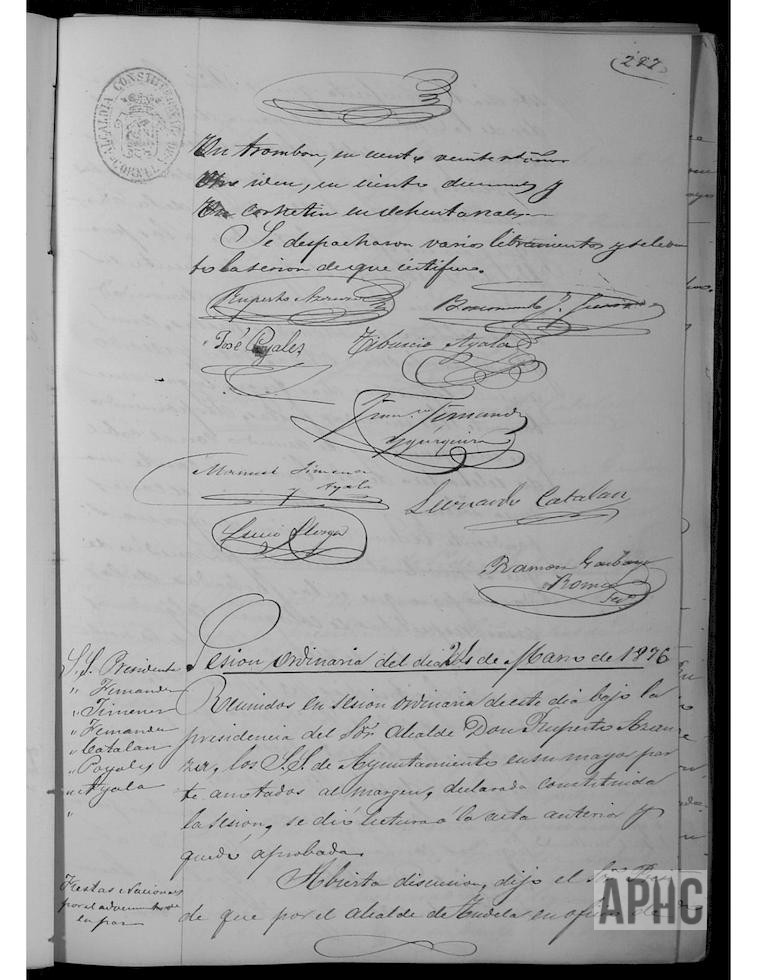 (287)
ALCALDIA CONSTITUCIONAL DE CORNEL
Un trombon, en ciento veinte
Otro iden, en ciento diez y
Un cornetin en ochenta reales
Se despacharon varios libramientos y se levan
to la sesion de que certifico.
Ruperto Aznarez
Raimundo J.
José Poyales Tiburcio Ayala
Fran.co Fernandez
Yzurquiza
Manuel Jimenez
y Ayala
Leonardo Catalan
Lucio
Ramon Garbayo
Roma
Srio
Sesion ordinaria del dia 24 de Marzo de 1876
S.S. Presidente
" Fernandez
" Jimenez
" Fernandez
" Catalan
" Poyales
" Ayala
"
Reunidos en sesion ordinaria de este dia bajo la
presidencia del Sõr Alcalde Don Ruperto Azna
rez, los S.S. de Ayuntamiento en su mayor par
te anotados al margen, declarada constituida
la sesion, se dió lectura a la acta anterior y
quedó aprobada.
Fiestas Nacionales
por el advenimto de
la paz
Abierta discusion, dijo el Sõr Presi
de que por el Alcalde de Tudela en oficio de
APHC